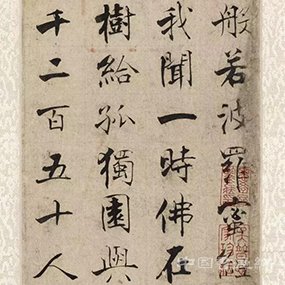 般若波羅蜜
我聞一時佛在
樹給孤獨園與
千二百五十人